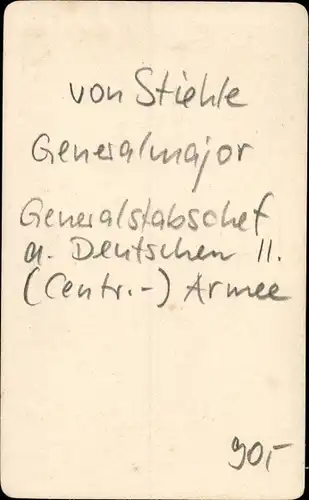 von Stiehle
Generalmajor
Generalstabschef
d. Deutschen II.
(Centr.-) Armee
90,-